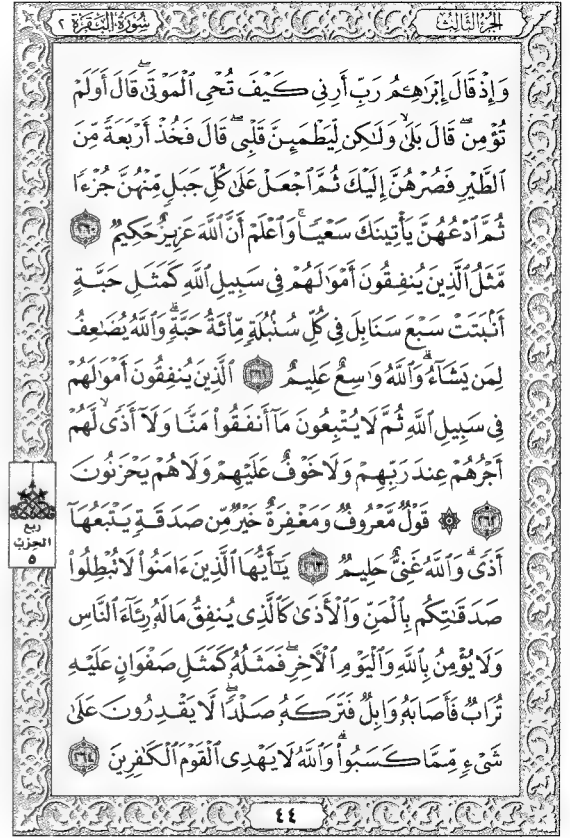 الجزء الثالث
سورة البقرة ٢
وَإِذْ قَالَ إِبْرَٰهِـۧمُ رَبِّ أَرِنِى كَيْفَ تُحْىِ ٱلْمَوْتَىٰ ۖ قَالَ أَوَلَمْ
تُؤْمِن ۖ قَالَ بَلَىٰ وَلَٰكِن لِّيَطْمَئِنَّ قَلْبِى ۖ قَالَ فَخُذْ أَرْبَعَةً مِّنَ
ٱلطَّيْرِ فَصُرْهُنَّ إِلَيْكَ ثُمَّ ٱجْعَلْ عَلَىٰ كُلِّ جَبَلٍ مِّنْهُنَّ جُزْءًا
ثُمَّ ٱدْعُهُنَّ يَأْتِينَكَ سَعْيًا ۚ وَٱعْلَمْ أَنَّ ٱللَّهَ عَزِيزٌ حَكِيمٌ ٢٦٠
مَّثَلُ ٱلَّذِينَ يُنفِقُونَ أَمْوَٰلَهُمْ فِى سَبِيلِ ٱللَّهِ كَمَثَلِ حَبَّةٍ
أَنۢبَتَتْ سَبْعَ سَنَابِلَ فِى كُلِّ سُنۢبُلَةٍ مِّا۟ئَةُ حَبَّةٍ ۗ وَٱللَّهُ يُضَٰعِفُ
لِمَن يَشَآءُ ۗ وَٱللَّهُ وَٰسِعٌ عَلِيمٌ ٢٦١ ٱلَّذِينَ يُنفِقُونَ أَمْوَٰلَهُمْ
فِى سَبِيلِ ٱللَّهِ ثُمَّ لَا يُتْبِعُونَ مَآ أَنفَقُوا۟ مَنًّا وَلَآ أَذًى ۙ لَّهُمْ
أَجْرُهُمْ عِندَ رَبِّهِمْ وَلَا خَوْفٌ عَلَيْهِمْ وَلَا هُمْ يَحْزَنُونَ
٢٦٢ ۞ قَوْلٌ مَّعْرُوفٌ وَمَغْفِرَةٌ خَيْرٌ مِّن صَدَقَةٍ يَتْبَعُهَآ
أَذًى ۗ وَٱللَّهُ غَنِىٌّ حَلِيمٌ ٢٦٣ يَٰٓأَيُّهَا ٱلَّذِينَ ءَامَنُوا۟ لَا تُبْطِلُوا۟
صَدَقَٰتِكُم بِٱلْمَنِّ وَٱلْأَذَىٰ كَٱلَّذِى يُنفِقُ مَالَهُۥ رِئَآءَ ٱلنَّاسِ
وَلَا يُؤْمِنُ بِٱللَّهِ وَٱلْيَوْمِ ٱلْءَاخِرِ ۖ فَمَثَلُهُۥ كَمَثَلِ صَفْوَانٍ عَلَيْهِ
تُرَابٌ فَأَصَابَهُۥ وَابِلٌ فَتَرَكَهُۥ صَلْدًا ۖ لَّا يَقْدِرُونَ عَلَىٰ
شَىْءٍ مِّمَّا كَسَبُوا۟ ۗ وَٱللَّهُ لَا يَهْدِى ٱلْقَوْمَ ٱلْكَٰفِرِينَ ٢٦٤
ربع
الحزب
٥
٤٤